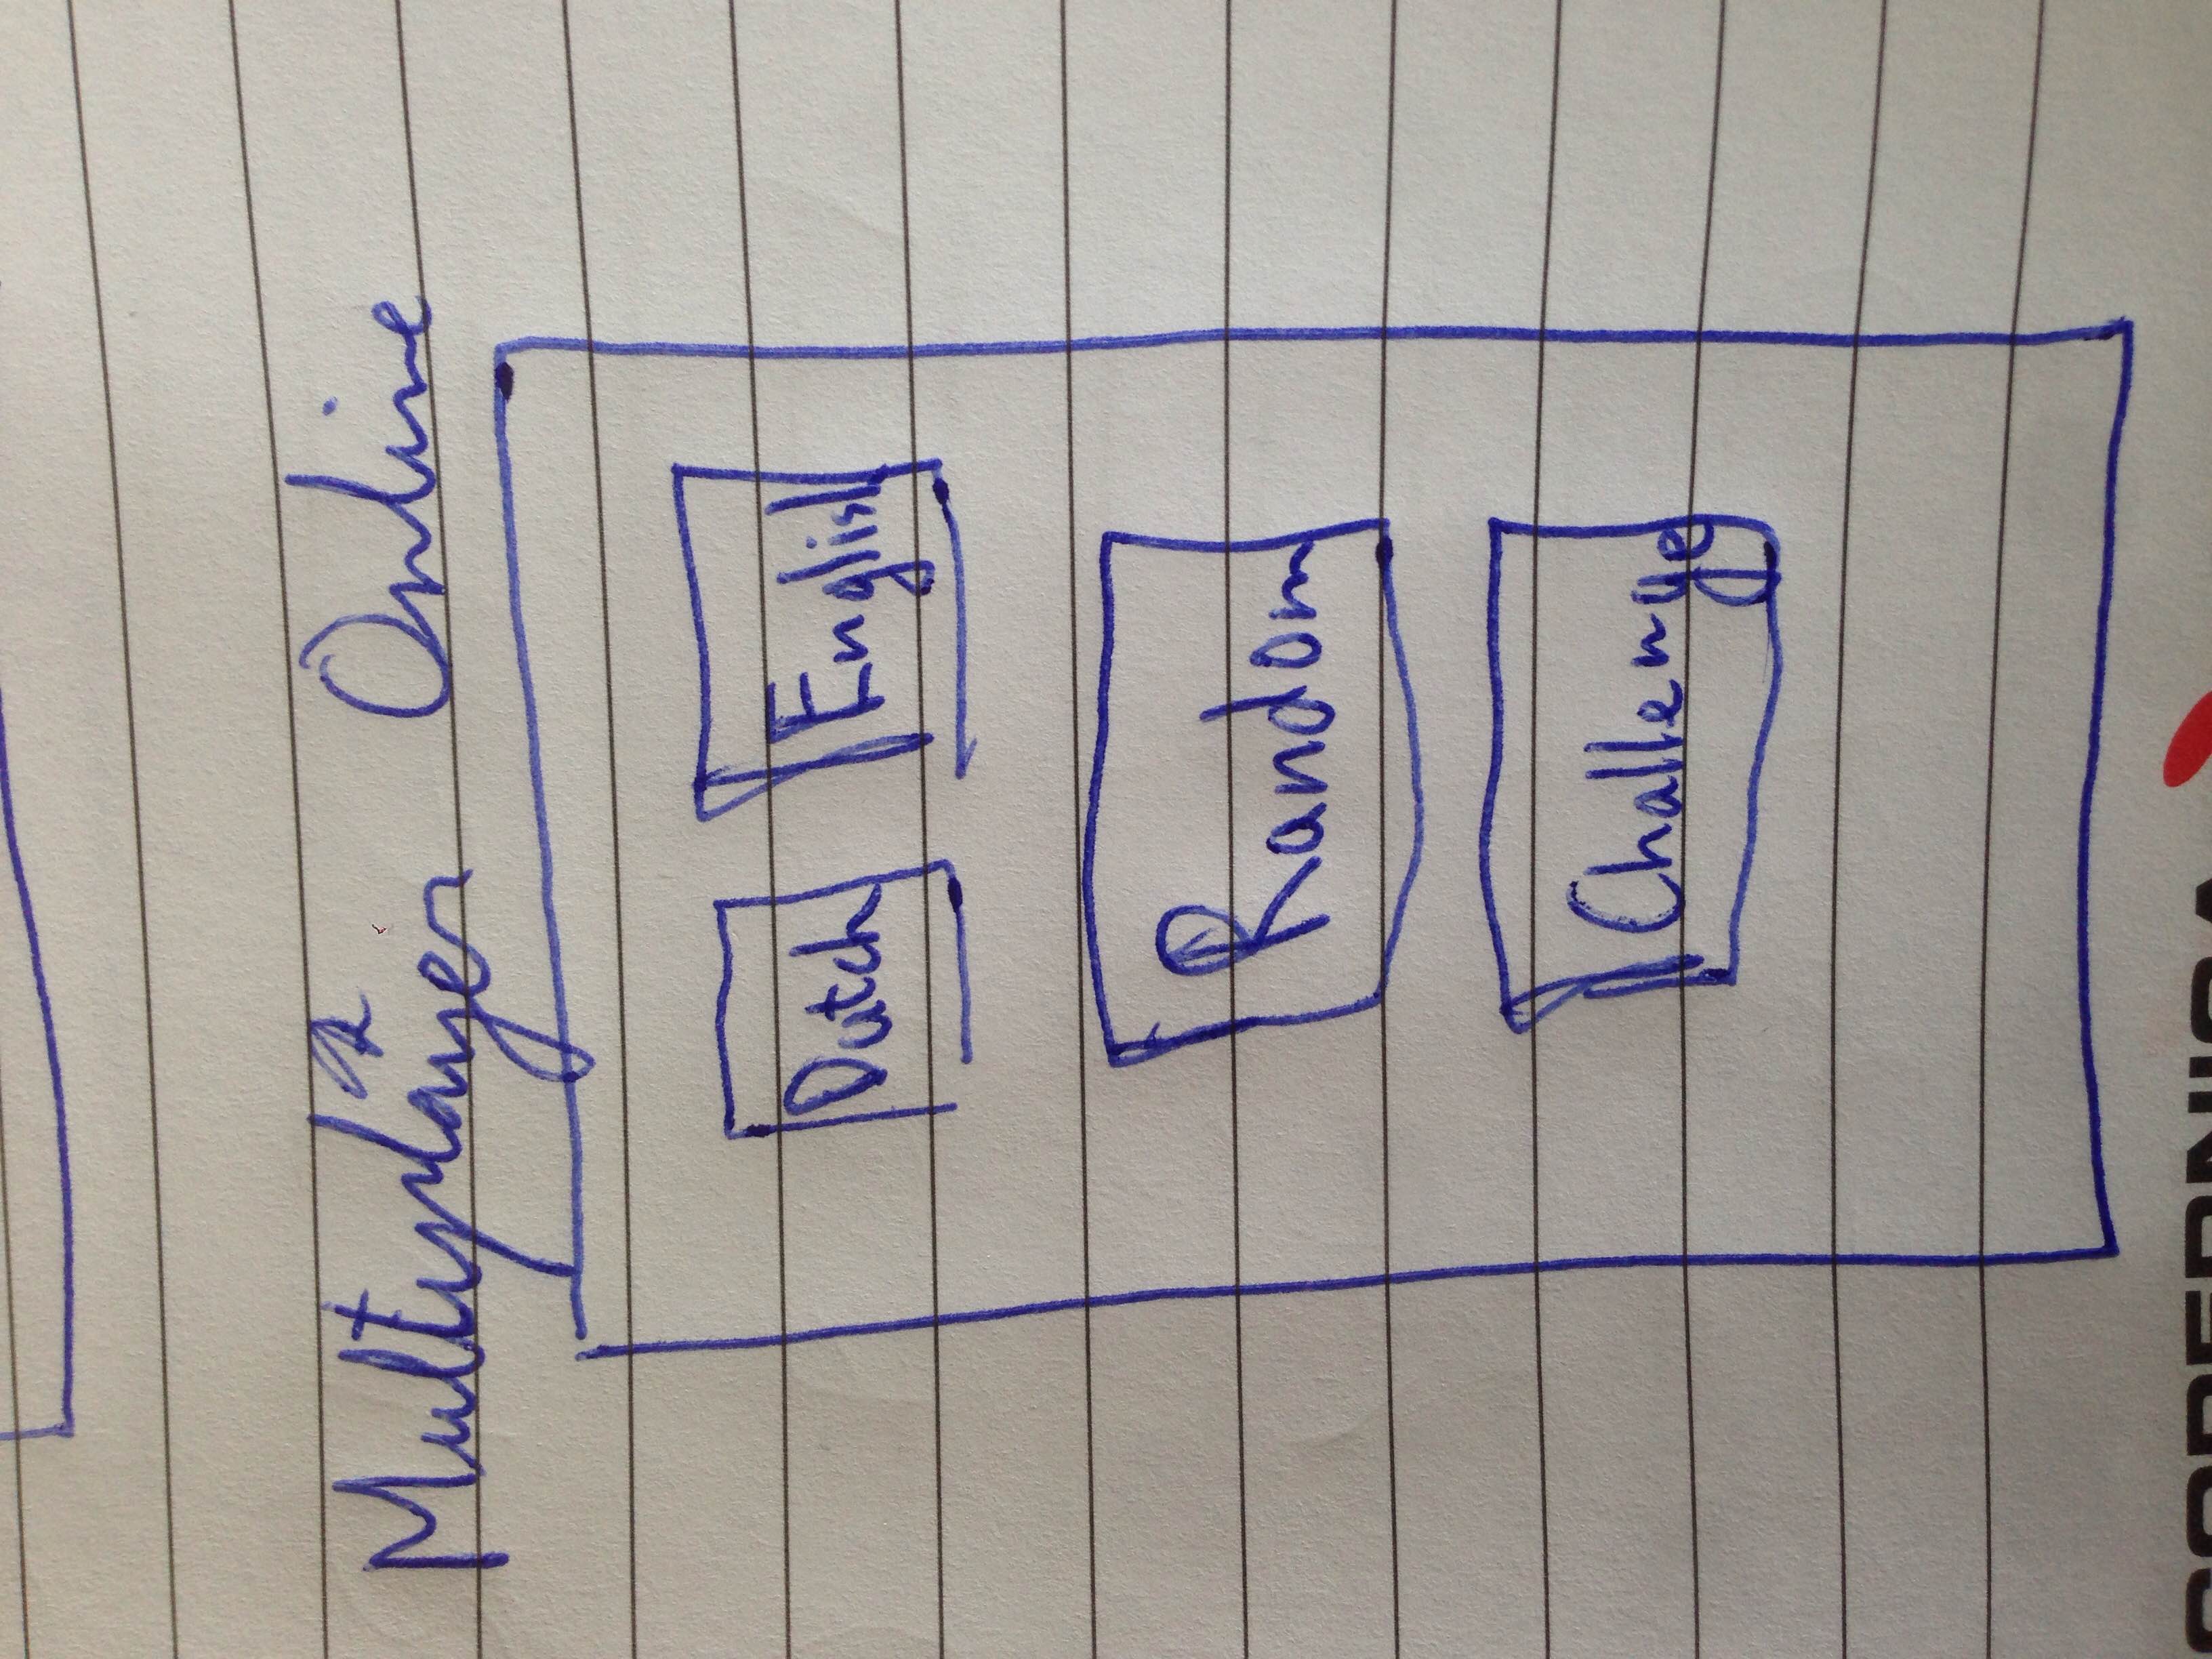 Multiplayer Online
Dutch English
Random
Challenge
COPERNICA